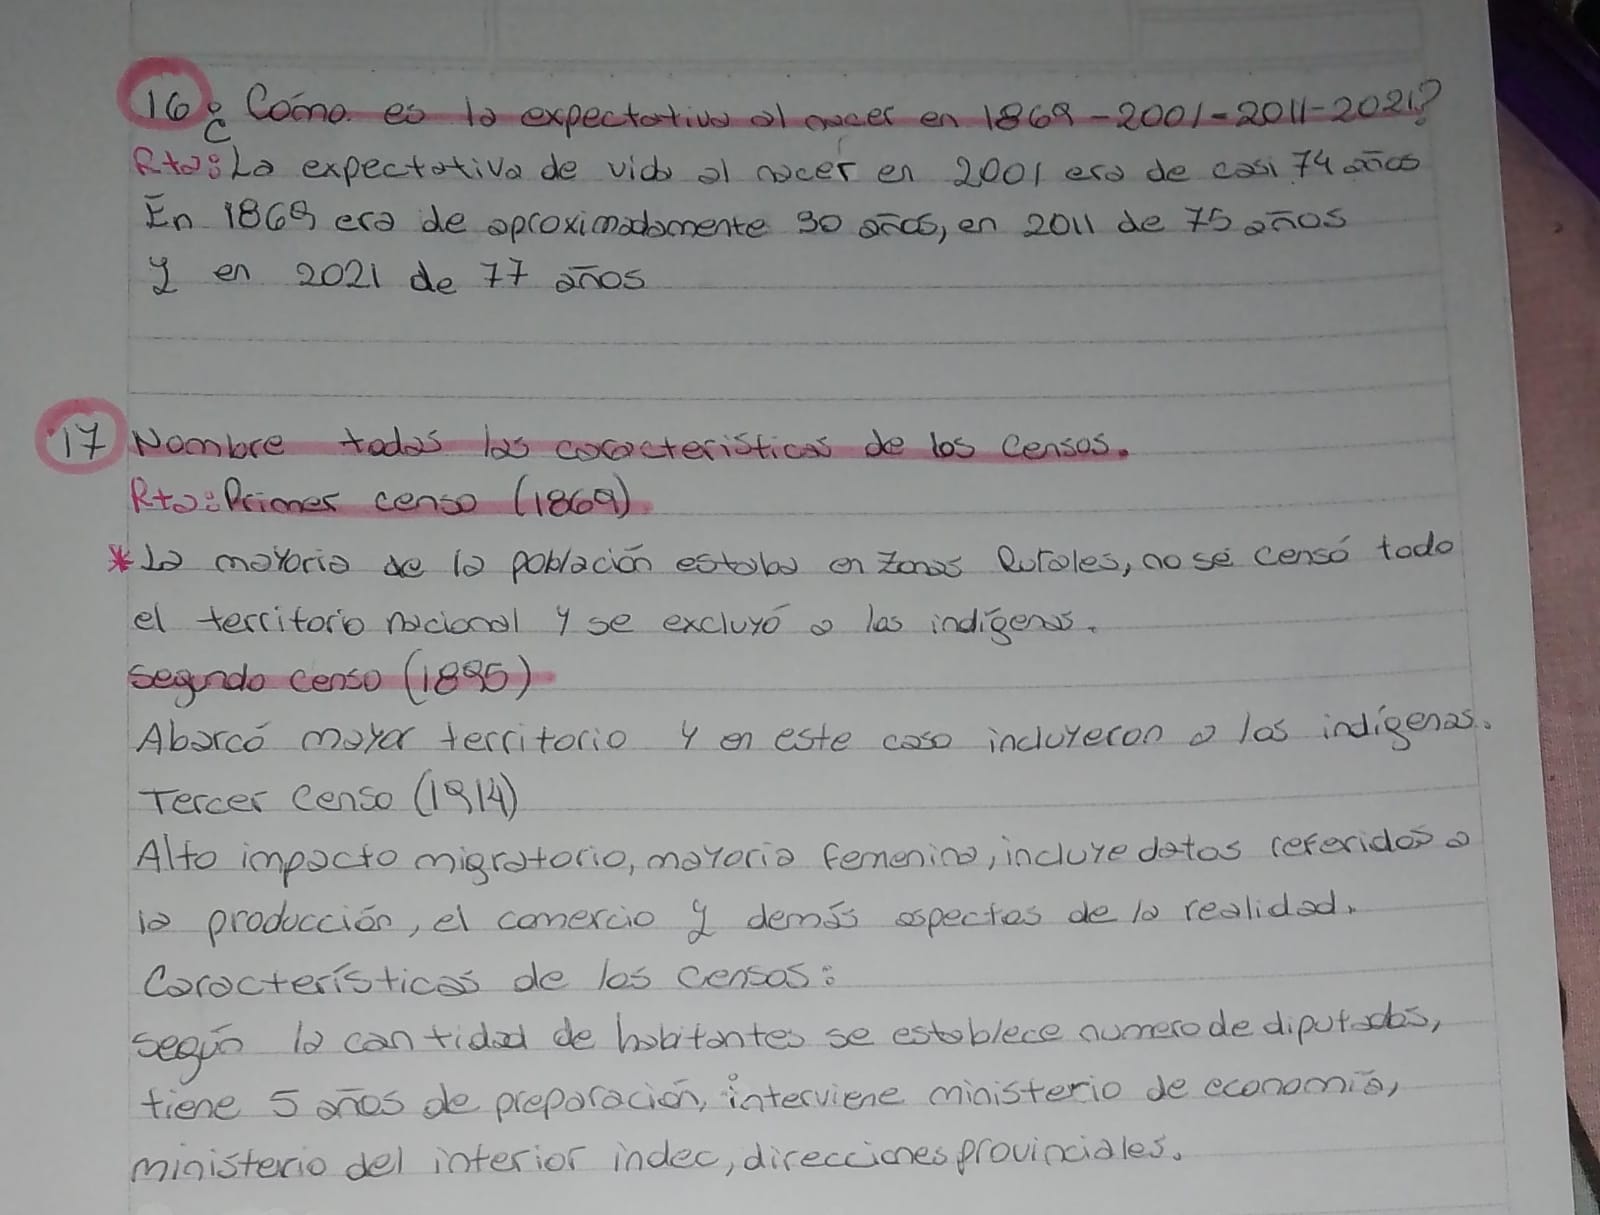 16 ¿Cómo es la expectativa al nacer en 1869-2001-2011-2021?
Rta: La expectativa de vida al nacer en 2001 era de casi 74 años
En 1869 era de aproximadamente 30 años, en 2011 de 75 años
y en 2021 de 77 años
17 Nombre todas las características de los censos.
Rta: Primer censo (1869)
*La mayoría de la población estaba en zonas Rurales, no se censó todo
el territorio nacional y se excluyó a los indígenas.
Segundo censo (1895)
Abarcó mayor territorio y en este caso incluyeron a los indígenas.
Tercer Censo (1914)
Alto impacto migratorio, mayoria femenina, incluye datos referidos a
la producción, el comercio y demás aspectos de la realidad.
Características de los censos:
según la cantidad de habitantes se establece numero de diputados,
tiene 5 años de preparación, interviene ministerio de economía,
ministerio del interior indec, direcciones provinciales.